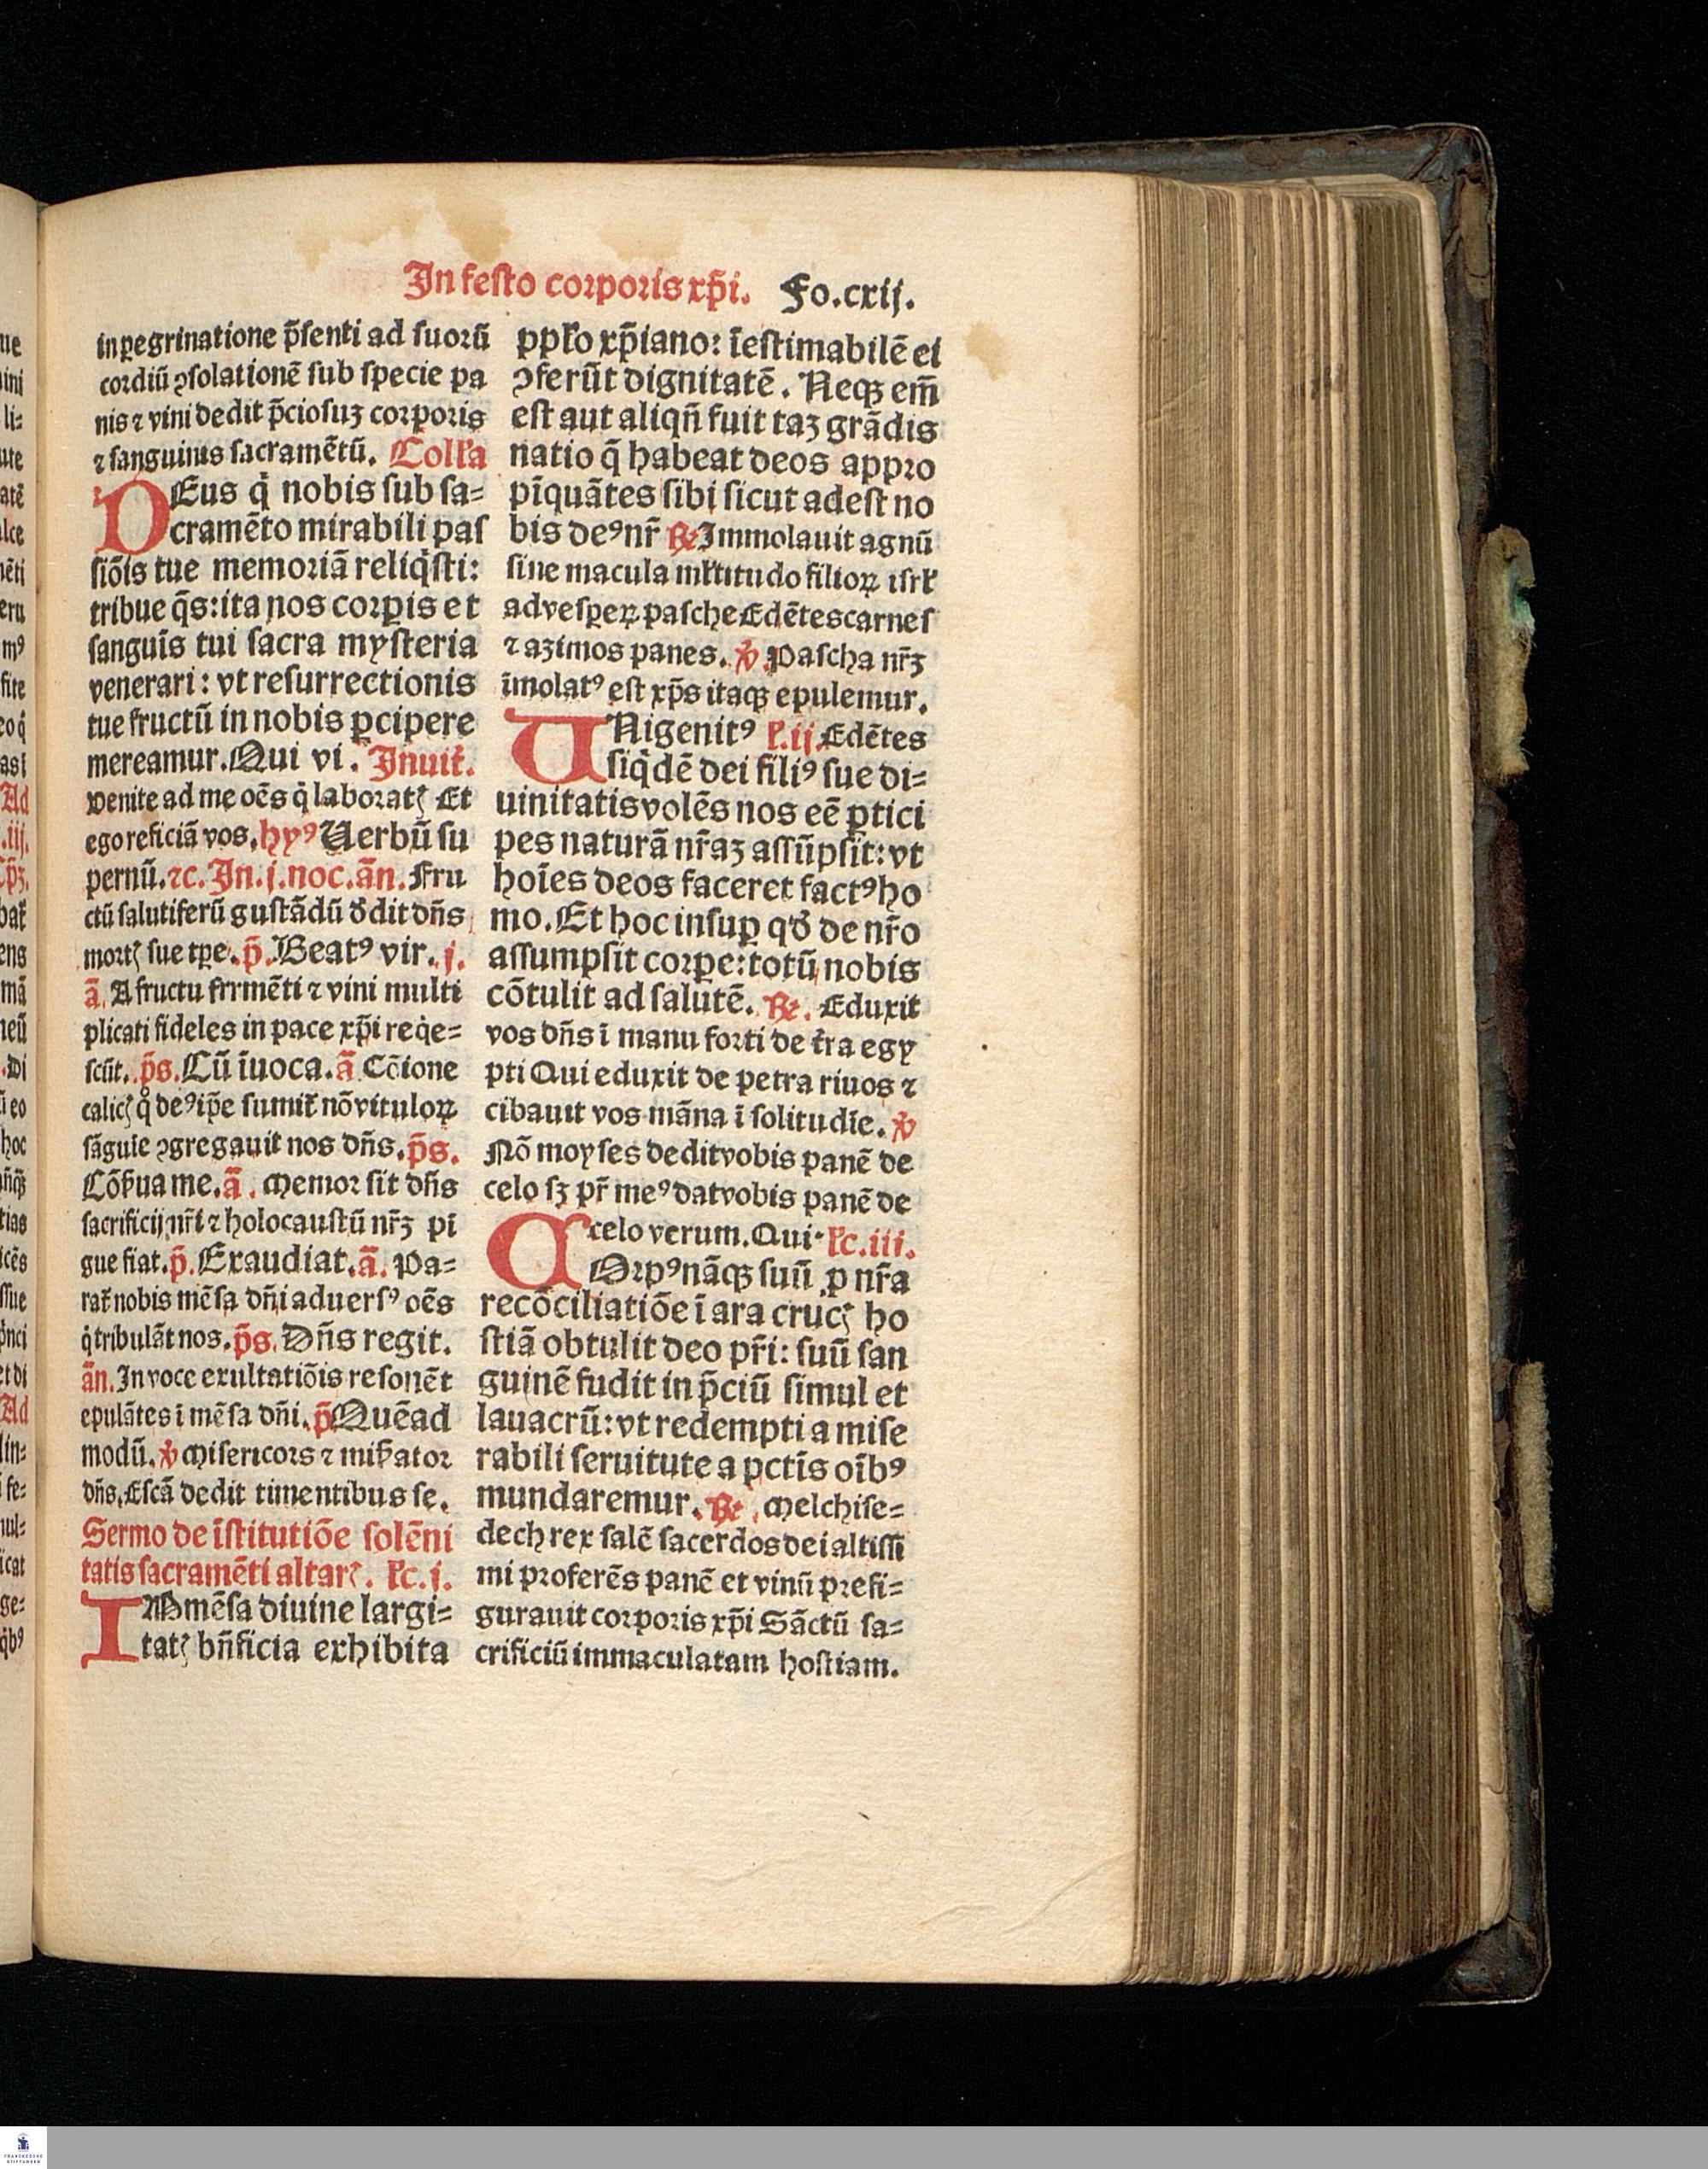 In festo corporis xp̄i. Fo.cxij.
in ꝑegrinatione p̄senti ad suorū
cordiū ꝯsolationē sub specie pa
nis ⁊ vini dedit p̄ciosuꝫ corporis
⁊ sanguinis sacramētū. Coll'a
DEus q̇ nobis sub sa⸗
cramēto mirabili pas
siōis tue memoriā reliq̇sti:
tribue q̄s: ita nos corꝑis et
sanguīs tui sacra mysteria
venerari: vt resurrectionis
tue fructū in nobis ꝑcipere
mereamur. Qui vi. Inuit̄.
Venite ad me oēs q̇ laboratꝭ Et
ego reficiā vos. hyꝰ Uerbū su
pernū. ⁊c. In .j. noc. ān. Fru
ctū salutiferū gustādū ðdit dn̄s
mortꝭ sue tꝑe. p̄. Beatꝰ vir. j.
ā. A fructu frrmēti ⁊ vini multi
plicati fideles in pace xp̄i req̇e⸗
scūt. p̄s. Cū īuoca. ā Cōione
calicꝭ q̊ deꝰ ip̄e sumit̄ nō vituloꝝ
sāguīe ꝯgregauit nos dn̄s. p̄s.
Cōẜua me. ā. Memor sit dn̄s
sacrificij nr̄i ⁊ holocaustū nr̄ꝫ pī
gue fiat. p̄. Exaudiat. ā. Pa⸗
rat̄ nobis mēsa dn̄i aduersꝰ oēs
q̇ tribulāt nos. p̄s. Dn̄s regit.
ān. In voce exultatiōis resonēt
epulātes ī mēsa dn̄i. p̄ Quēad
modū. ℣ Misericors ⁊ miẜator
dn̄s. Escā dedit timentibus se.
Sermo de īstitutiōe solēni
tatis sacramēti altarꝭ. l'c. j.
IMmēsa diuine largi⸗
tatꝭ bn̄ficia exhibita
ppl'o xp̄iano: īestimabilē ei
ꝯferūt dignitatē. Neqꝫ em̄
est aut aliqn̄ fuit taꝫ grādis
natio q̄ habeat deos appro
pīquātes sibi sicut adest no
bis deꝰ nr̄ ℟ Immolauit agnū
sine macula ml'titudo filioꝝ isrl'
ad vesꝑeꝝ pasche Edētes carnes
⁊ azimos panes. ℣. Pascha nr̄ꝫ
īmolatꝰ est xp̄s itaqꝫ epulemur.
UNigenitꝰ l'. ij. Edētes
siq̇dē dei filiꝰ sue di⸗
uinitatis volēs nos eē ꝑtici
pes naturā nr̄aꝫ assūpsit: vt
hoīes deos faceret factꝰ ho
mo. Et hoc insuꝑ qð de nr̄o
assumpsit corꝑe: totū nobis
cōtulit ad salutē. ℟. Eduxit
vos dn̄s ī manu forti de t̄ra egy
pti Qui eduxit de petra riuos ⁊
cibauit vos māna ī solitudīe. ℣
Nō moyses dedit vobis panē de
celo sꝫ pr̄ meꝰ dat vobis panē de
celo verum. Qui. l'c. iii.
COrpꝰ nāqꝫ suū ꝓ nr̄a
recōciliatiōe ī ara crucꝭ ho
stiā obtulit deo pr̄i: suū san
guinē fudit in p̄ciū simul et
lauacrū: vt redempti a mise
rabili seruitute a pctīs oībꝰ
mundaremur. ℟. Melchise⸗
dech rex salē sacerdos dei altissi
mi proferēs panē et vinū prefi⸗
gurauit corporis xp̄i Sāctū sa⸗
crificiū immaculatam hostiam.
FRANCKESCHE
STIFTUNGEN